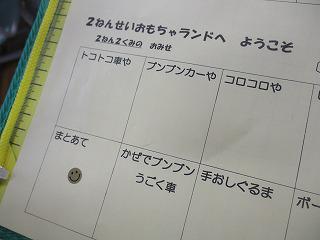 2ねんせいおもちゃランドへ ようこそ
2ねん2くみの おみせ
トコトコ車や
ブンブンカーや
コロコロや
まとあて
かぜでブンブン
うごく車
手おしぐるま
ボー